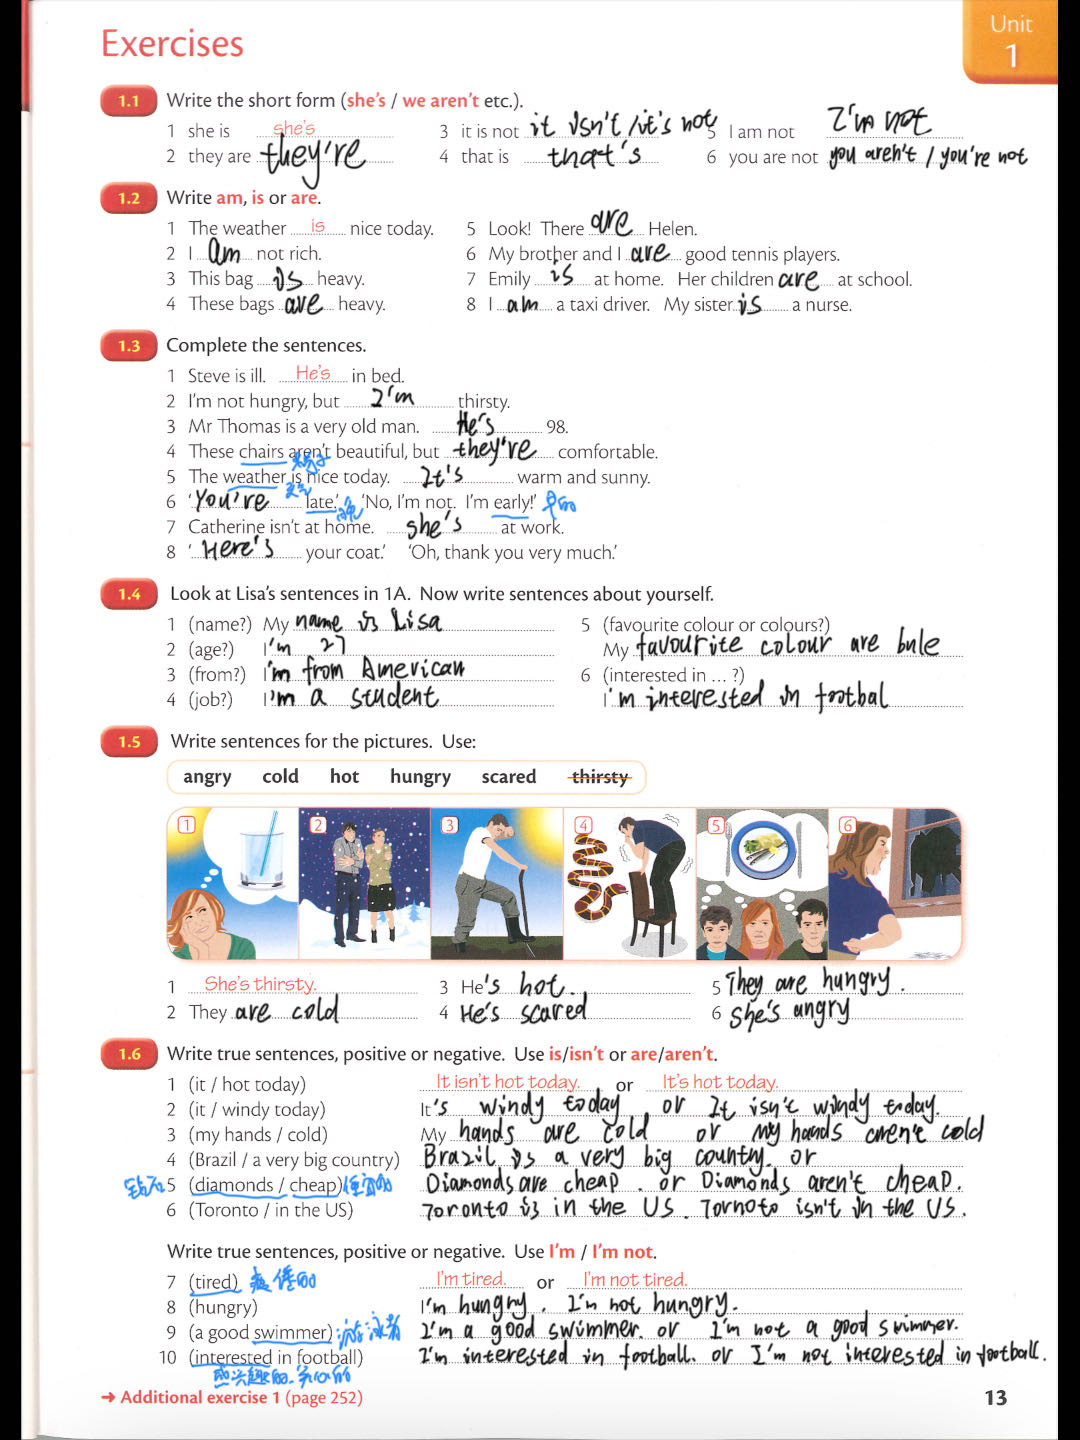 Exercises
Unit
1
1.1 Write the short form (she's / we aren't etc.).
1 she is she's 3 it is not it isn't /it's not 5 I am not I'm not
2 they are they're 4 that is that's 6 you are not you aren't / you're not
1.2 Write am, is or are.
1 The weather is nice today. 5 Look! There are Helen.
2 I am not rich. 6 My brother and I are good tennis players.
3 This bag is heavy. 7 Emily is at home. Her children are at school.
4 These bags are heavy. 8 I am a taxi driver. My sister is a nurse.
1.3 Complete the sentences.
1 Steve is ill. He's in bed.
2 I'm not hungry, but I'm thirsty.
3 Mr Thomas is a very old man. He's 98.
4 These chairs aren't beautiful, but they're comfortable.
椅子
5 The weather is nice today. It's warm and sunny.
天气
6 'You're late.' 晚 'No, I'm not. I'm early!' 早的
7 Catherine isn't at home. she's at work.
8 'Here's your coat.' 'Oh, thank you very much.'
1.4 Look at Lisa's sentences in 1A. Now write sentences about yourself.
1 (name?) My name is Lisa 5 (favourite colour or colours?)
2 (age?) I'm 27 My favourite colour are bule
3 (from?) I'm from American 6 (interested in ... ?)
4 (job?) I'm a student I'm interested in footbal
1.5 Write sentences for the pictures. Use:
angry cold hot hungry scared thirsty
1 2 3 4 5 6
1 She's thirsty. 3 He's hot. 5 They are hungry.
2 They are cold 4 He's scared 6 she's angry
1.6 Write true sentences, positive or negative. Use is/isn't or are/aren't.
1 (it / hot today) It isn't hot today. or It's hot today.
2 (it / windy today) It's windy today or It isn't windy today.
3 (my hands / cold) My hands are cold or my hands aren't cold
4 (Brazil / a very big country) Brazil is a very big country. or
钻石 5 (diamonds / cheap) 便宜的 Diamonds are cheap. or Diamonds aren't cheap.
6 (Toronto / in the US) Toronto is in the US. Tornoto isn't in the US.
Write true sentences, positive or negative. Use I'm / I'm not.
7 (tired) 疲倦的 I'm tired. or I'm not tired.
8 (hungry) I'm hungry. I'm not hungry.
9 (a good swimmer) 游泳者 I'm a good swimmer. or I'm not a good swimmer.
10 (interested in football) I'm interested in football. or I'm not interested in football.
感兴趣的.关心的
➜ Additional exercise 1 (page 252)
13